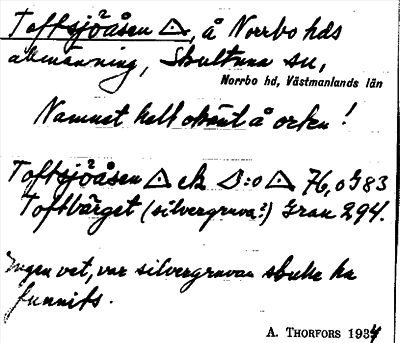 Toftsjöåsen △, å Norrbo hds
allmänning, Skultuna sn,
Norrbo hd, Västmanlands län
Namnet helt okänt å orten!
Toftsjöåsen △ ek S:o △ 76,0 G83
Toftbärget (silvergruva?) Gran 294.
Ingen vet, var silvergruvan skulle ha
funnits.
A. THORFORS 1934